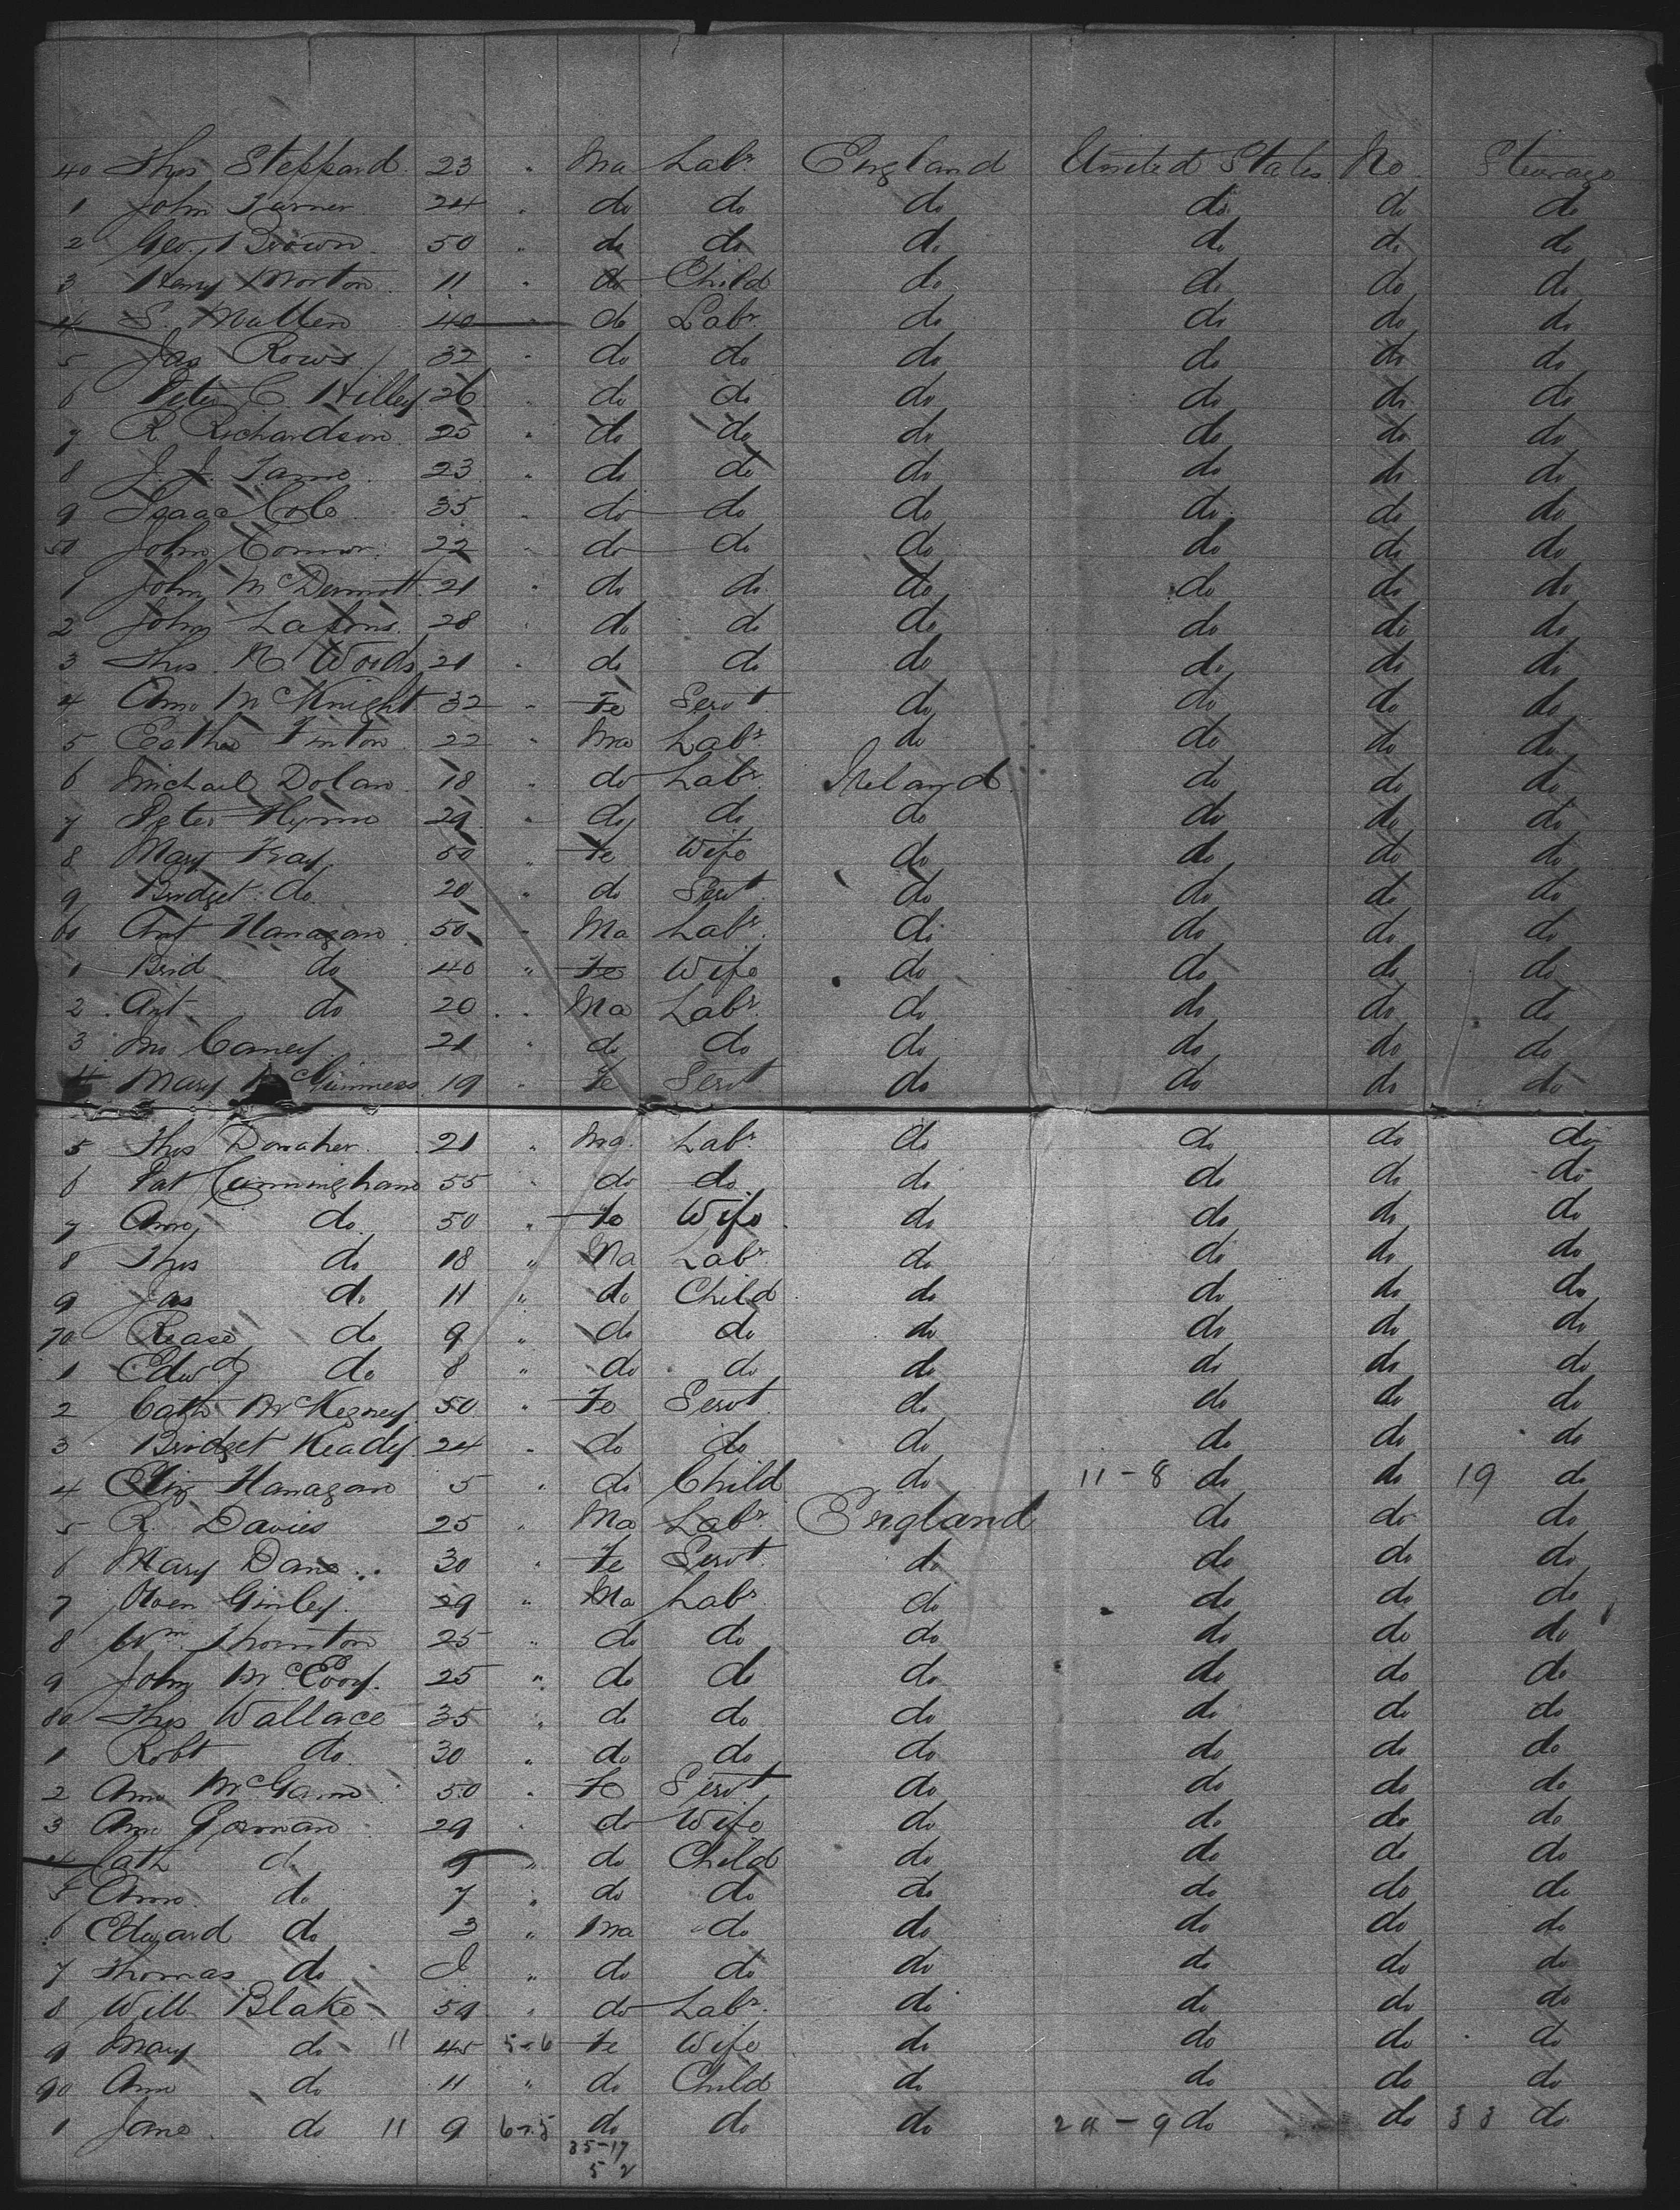 40 Thos Steppard 23 " Ma Labr England United States No Steerage
1 John Turner 24 " do do do do do do
2 Geo. Brown 50 " do do do do do do
3 Henry Morton 11 " do Child do do do do
4 S. Mullen 40 " do Labr do do do do
5 Jas Rows 32 " do do do do do do
6 Peter C Hilley 26 " do do do do do do
7 R Richardson 25 " do do do do do do
8 J. J. 23 " do do do do do do
9 Isaac Cole 35 " do do do do do do
50 John Connor 22 " do do do do do do
1 John McDermott 21 " do do do do do do
2 John 28 " do do do do do do
3 Thos. R Woods 21 " do do do do do do
4 Ann McKnight 32 " Fe Servt do do do do
5 Finton 22 " Ma Labr do do do do
6 Michael Dolan 18 " do Labr Ireland do do do
7 Peter Flynn 29 " do do do do do do
8 Mary 50 " Fe Wife do do do do
9 Bridget do 20 " do Servt do do do do
60 Ant Hanagan 50 " Ma Labr do do do do
1 Brid do 40 " Fe Wife do do do do
2 Ant do 20 " Ma Labr do do do do
3 Jno Caney 21 " do do do do do do
4 Mary McGuinness 19 " Fe Servt do do do do
5 Thos Donaher 21 " Ma Labr do do do do
6 Pat Cunningham 55 " do do do do do do
7 Ann do 50 " Fe Wife do do do do
8 Thos do 18 " Ma Labr do do do do
9 Jas do 11 " do Child do do do do
70 do 9 " do do do do do do
1 Edwd do 8 " do do do do do do
2 Cath McKegney 50 " Fe Servt do do do do
3 Bridget Keady 24 " do do do do do do
4 Eliz Hanagan 5 " do Child do 11-8 do do 19 do
5 R. Davies 25 " Ma Labr England do do do
6 Mary Dane 30 " Fe Servt do do do do
7 Owen Ginley 29 " Ma Labr do do do do
8 Wm Thornton 25 " do do do do do do
9 John McEvoy 25 " do do do do do do
80 Thos Wallace 35 " do do do do do do
1 Robt do 30 " do do do do do do
2 Ann McGann 50 " Fe Servt do do do do
3 Ann Gorman 29 " do Wife do do do do
4 Cath do 9 " do Child do do do do
5 Ann do 7 " do do do do do do
6 Edward do 3 " Ma do do do do do
7 Thomas do " do do do do do do
8 Will Blake 59 " do Labr do do do do
9 Mary do 11 45 5-6 Fe Wife do do do do
90 Ann do 11 " do Child do do do do
1 Jane do 11 9 6-5 do do do 24-9 do do 33 do
35-17
52